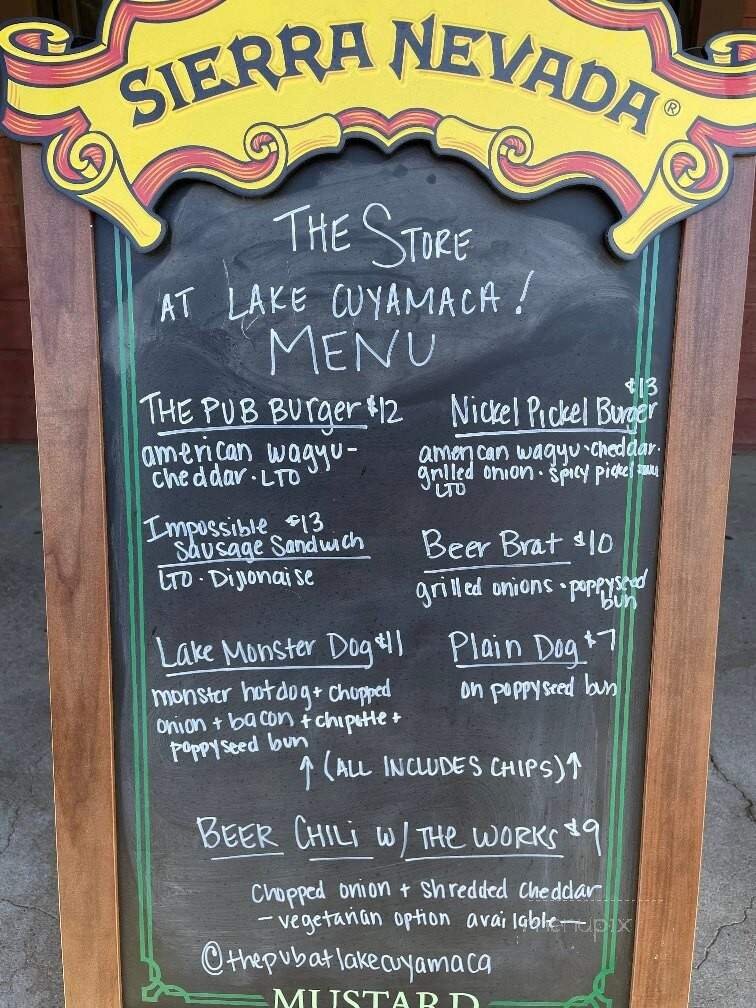 SIERRA NEVADA®
THE STORE
AT LAKE CUYAMACA!
MENU
THE PUB BUrger $12
american wagyu-
cheddar · LTO
Nickel Pickel Burger $13
american wagyu · cheddar ·
grilled onion · spicy pickel sauce
LTO
Impossible $13
Sausage Sandwich
LTO · Dijonaise
Beer Brat $10
grilled onions · poppyseed
bun
Lake Monster Dog $11
monster hotdog + chopped
onion + bacon + chipotle +
poppyseed bun
Plain Dog $7
on poppyseed bun
↑ (ALL INCLUDES CHIPS) ↑
BEER CHILI W/ THE WORKS $9
Chopped onion + shredded cheddar
- vegetarian option available -
@thepubatlakecuyamaca
MUSTARD
menupix